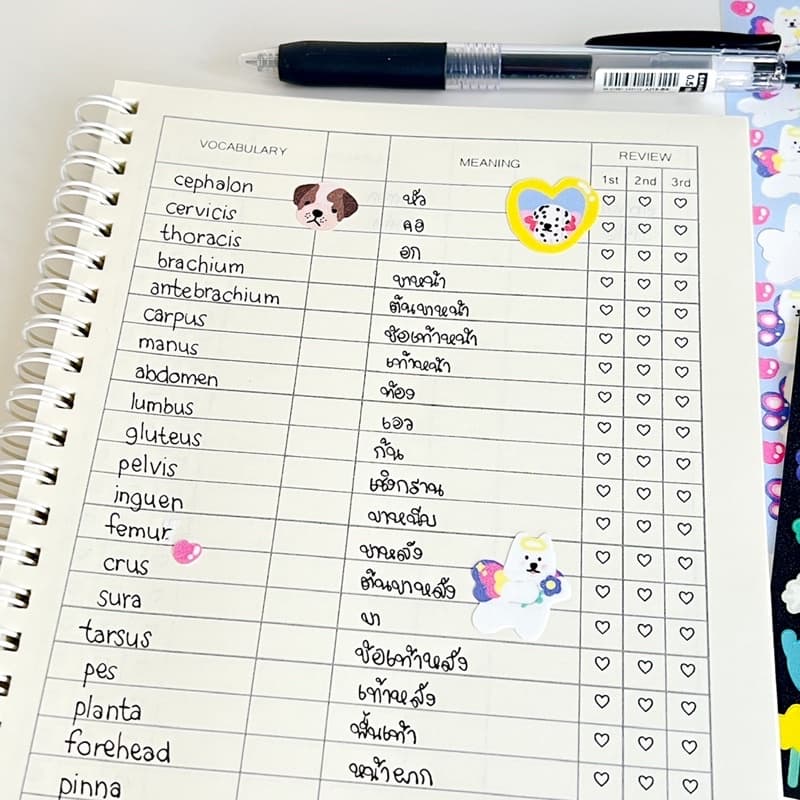 VOCABULARY MEANING REVIEW
1st 2nd 3rd
cephalon หัว
cervicis คอ
thoracis อก
brachium ขาหน้า
antebrachium ต้นขาหน้า
carpus ข้อเท้าหน้า
manus เท้าหน้า
abdomen ท้อง
lumbus เอว
gluteus ก้น
pelvis เชิงกราน
inguen ขาหนีบ
femur ขาหลัง
crus ต้นขาหลัง
sura ขา
tarsus ข้อเท้าหลัง
pes เท้าหลัง
planta พื้นเท้า
forehead หน้าผาก
pinna